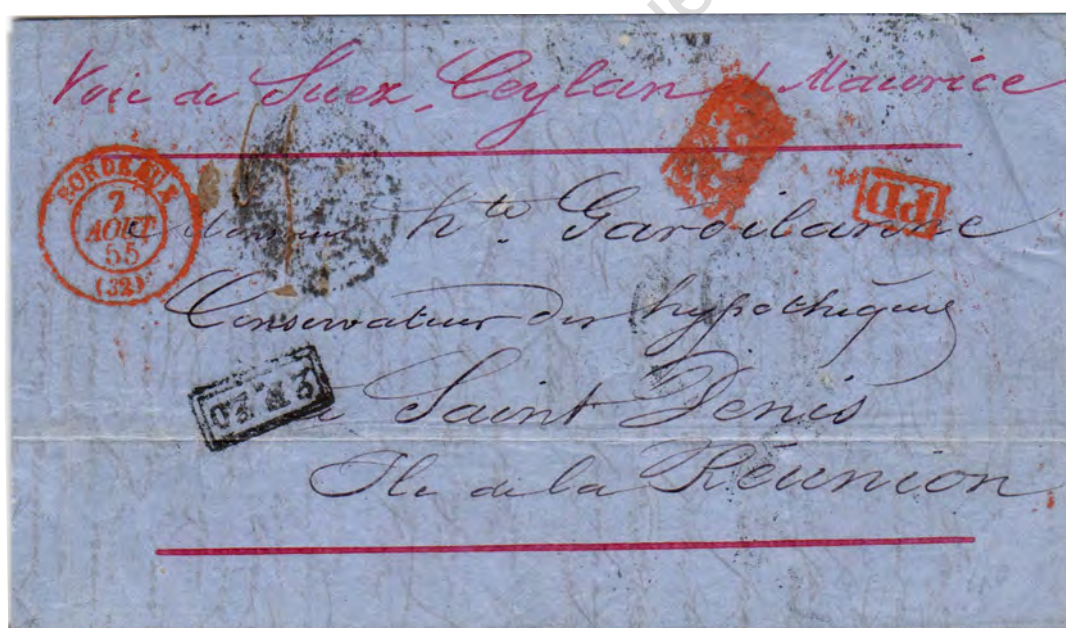 Voie de Suez, Ceylan & Maurice
BORDEAUX
7
AOUT
55
(32)
PD
Monsieur hte. Garoilanne
Conservateur des hypothèques
à Saint Denis
Ile de la Réunion